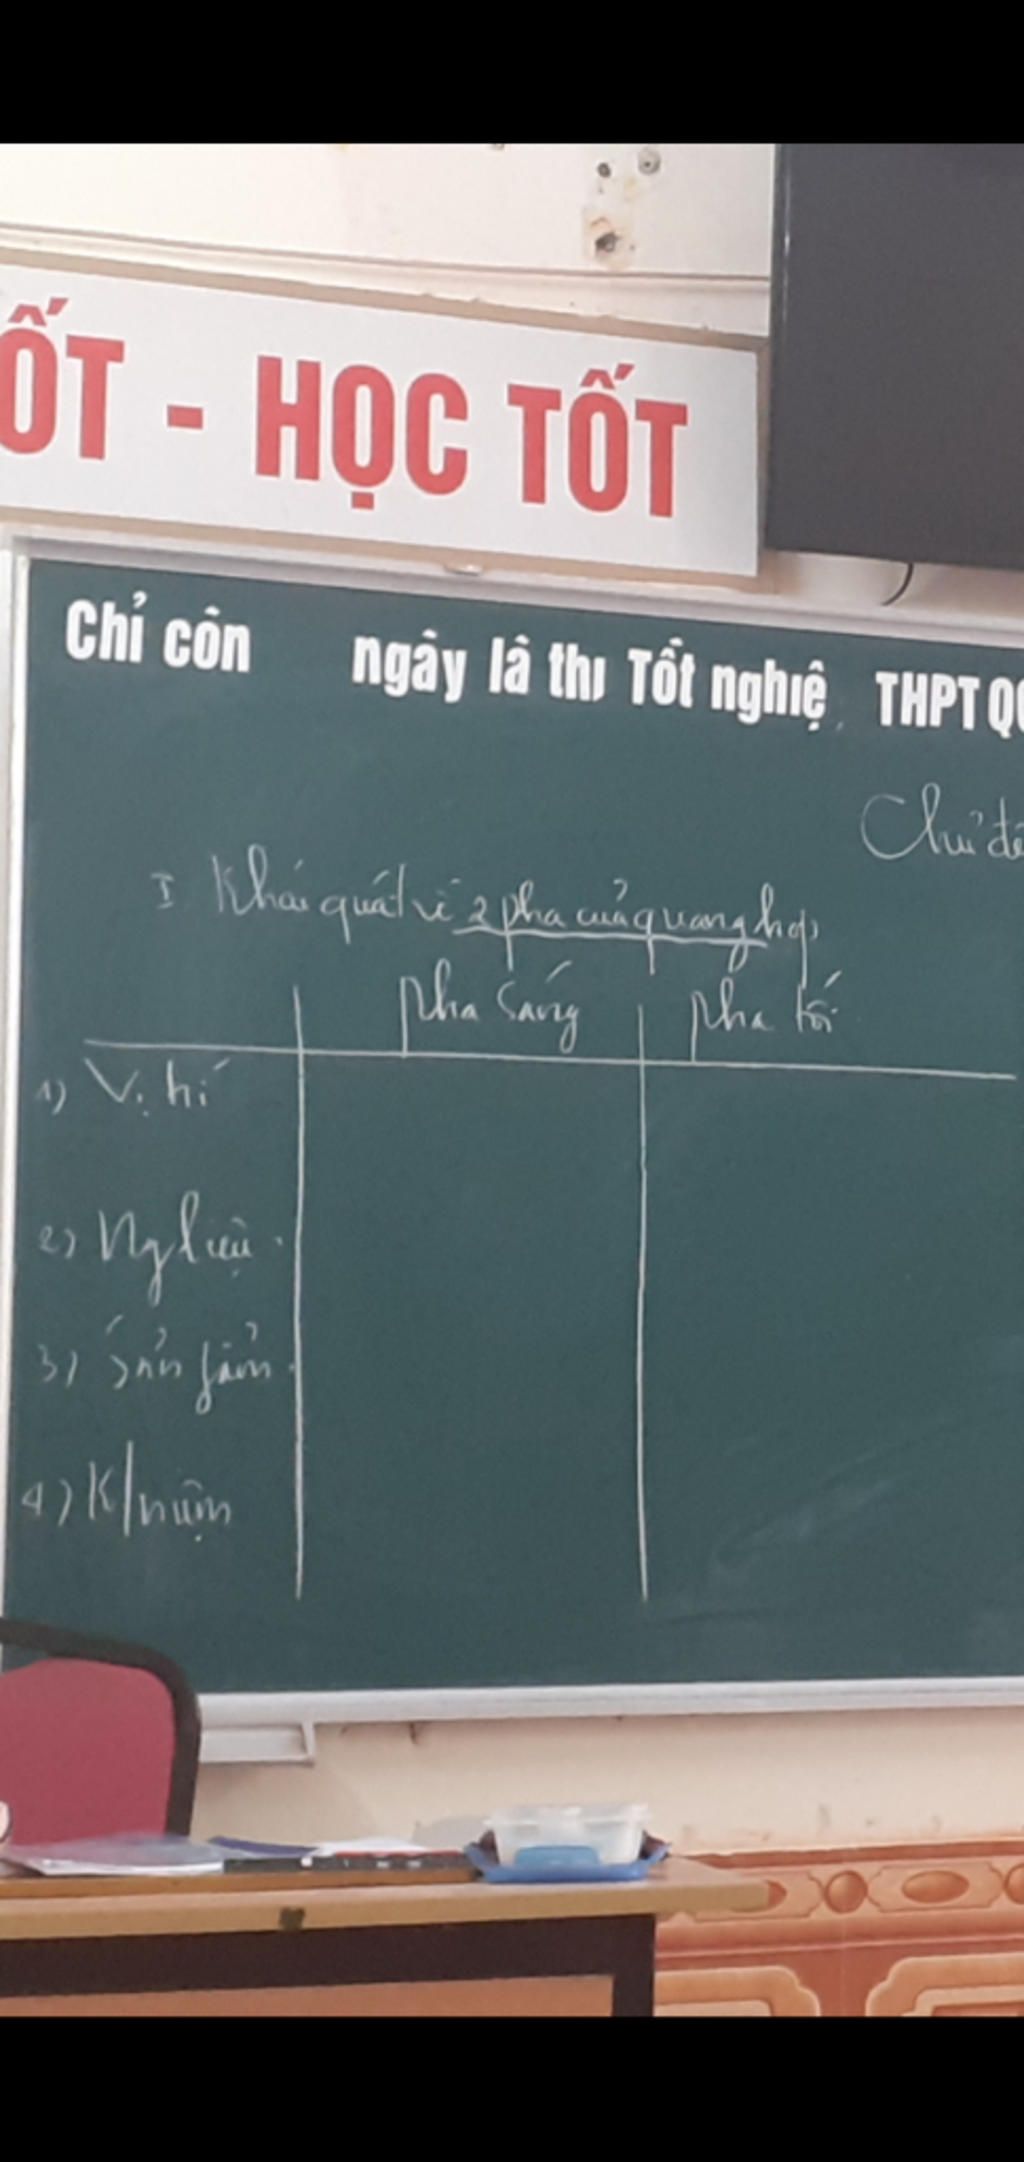 ỐT - HỌC TỐT
Chỉ còn ngày là thi Tốt nghiệ THPT QG
Chủ đề
I. Khái quát về 2 pha của quang hợp
pha sáng pha tối
1) Vị trí
2) Ng liệu
3) Sản fẩm
4) K/niệm